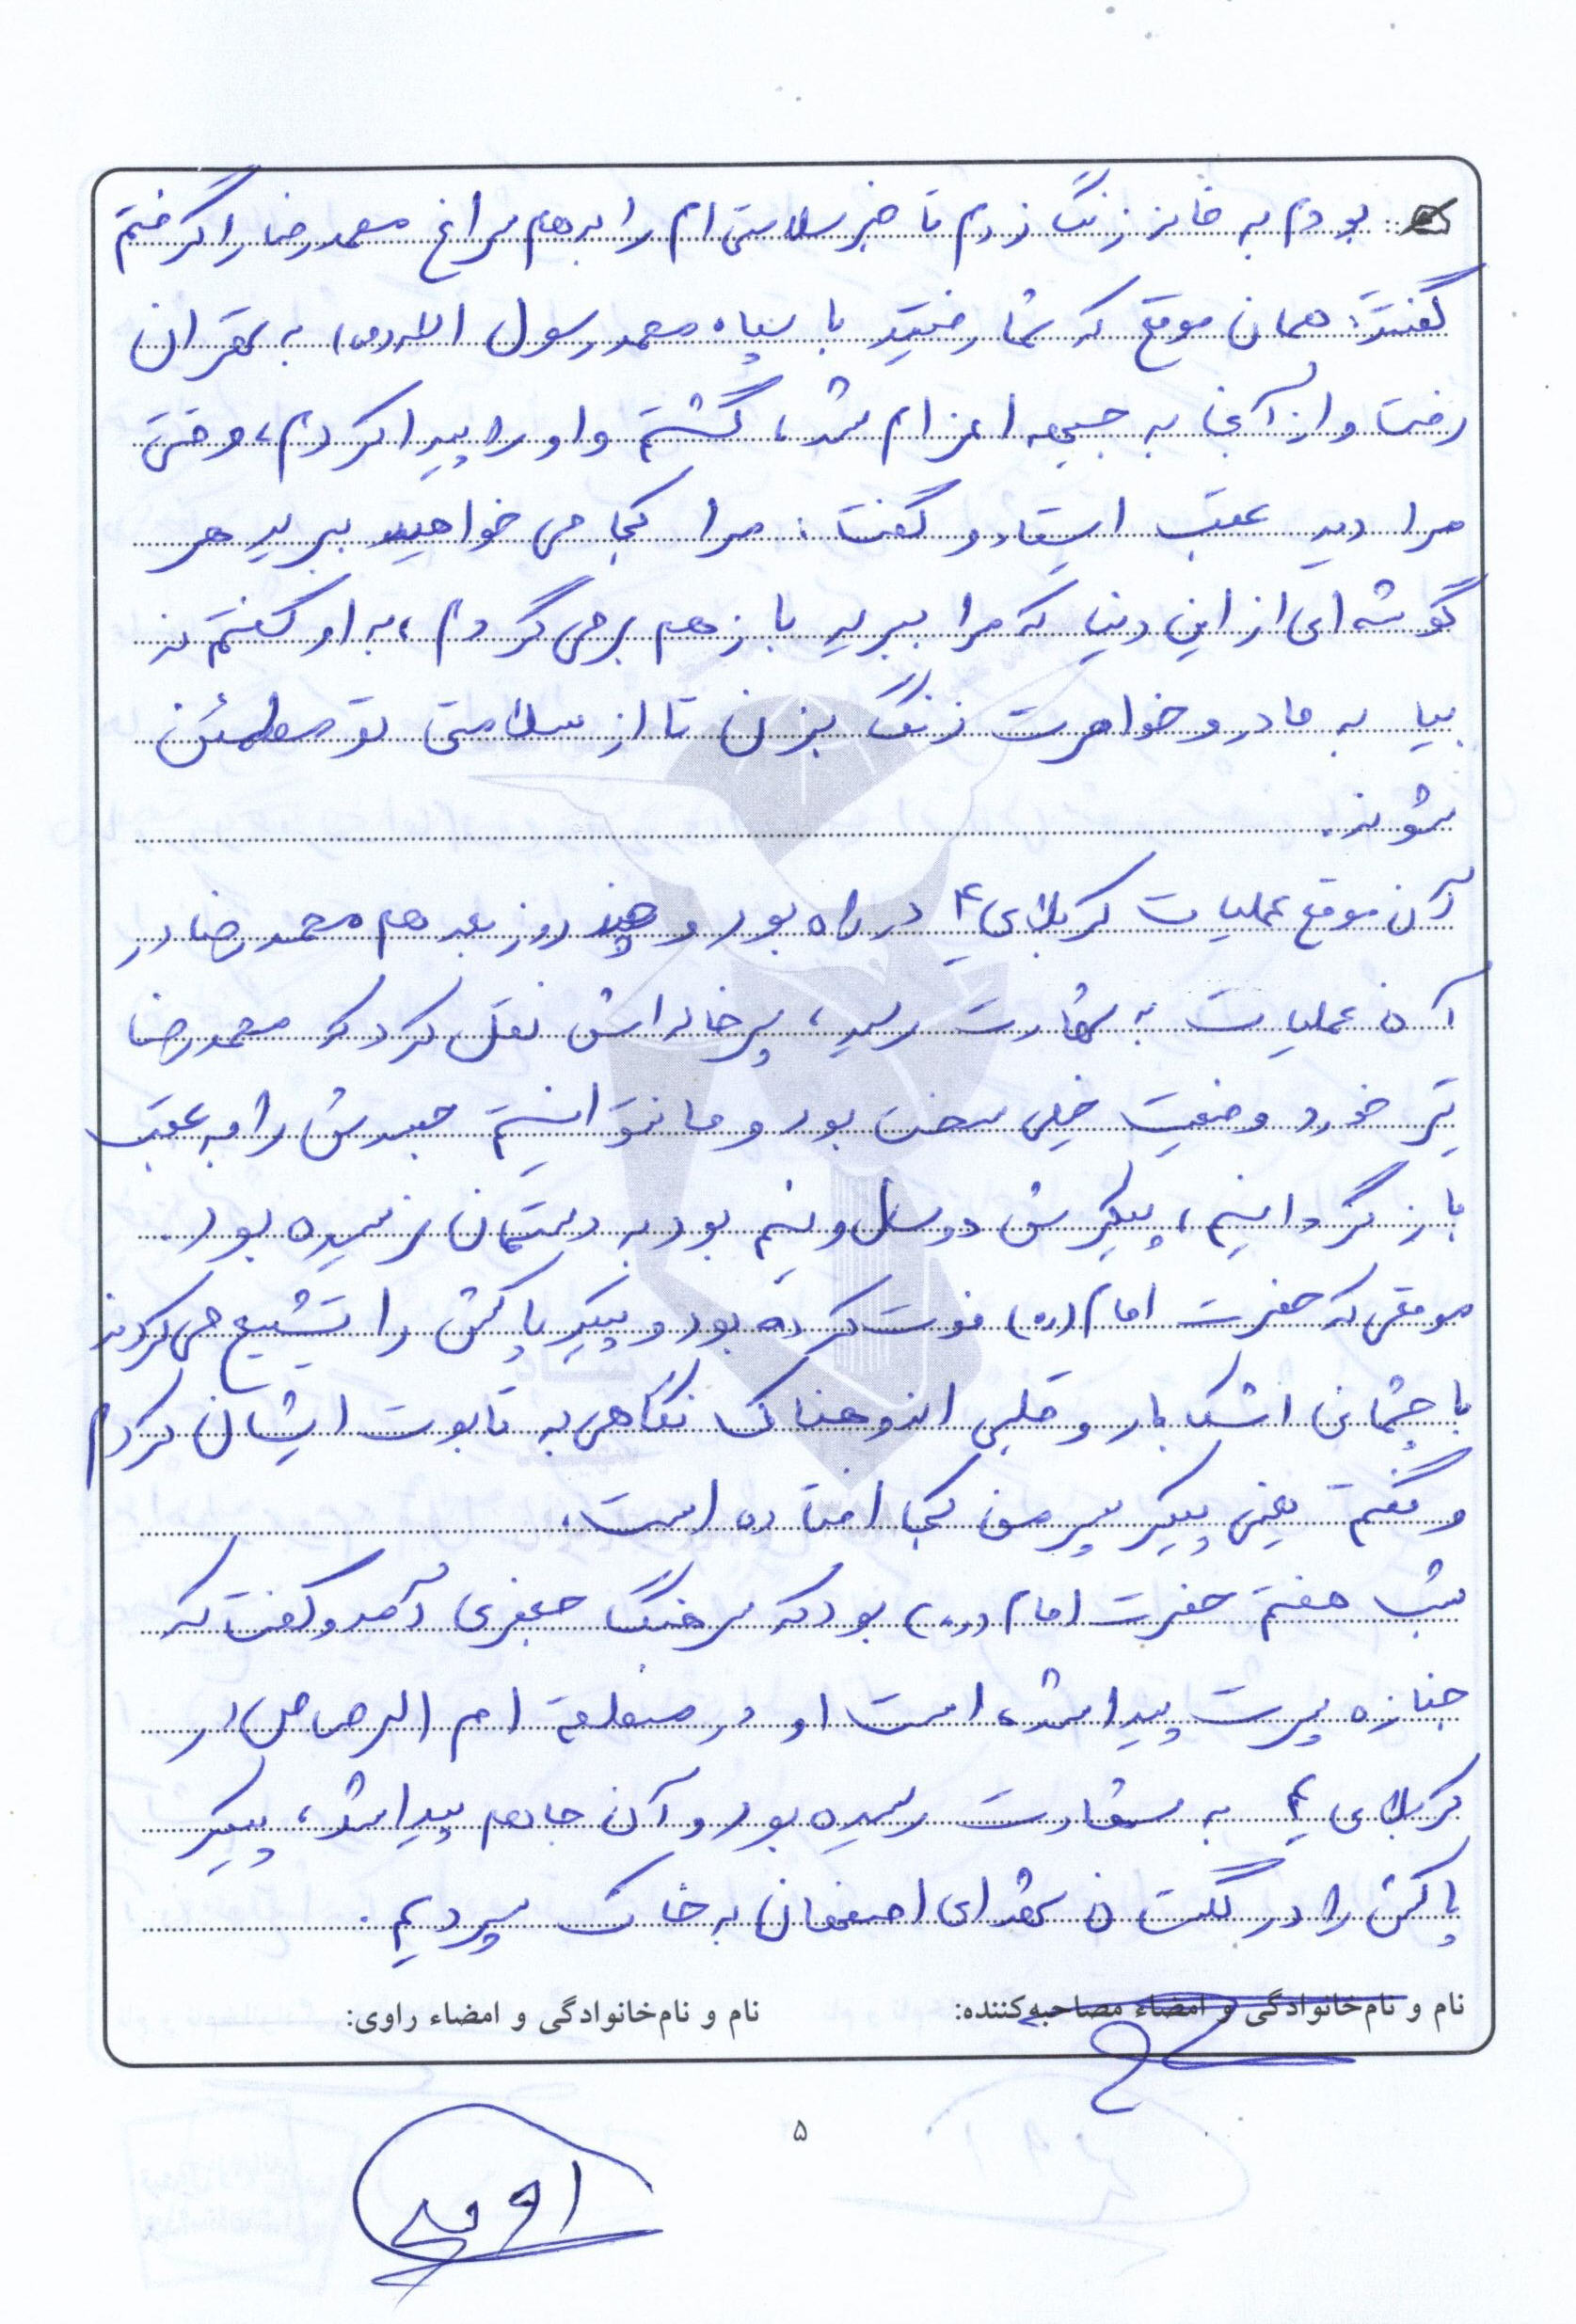 بودم به خانه زنگ زدم تا خبر سلامتی ام را بدهم سراغ محمدرضا را گرفتم
گفتند: همان موقع که شما رفتید با سپاه محمد رسول الله (ص) به تهران
رفت و از آنجا به جبهه اعزام شد، گشتم و او را پیدا کردم، وقتی
مرا دید عقب ایستاد و گفت: مرا کجا می خواهید ببرید هر
گوشه ای از این دنیا که مرا ببرید باز هم برمی گردم، به او گفتم نه
بیا به مادر و خواهرت زنگ بزن تا از سلامتی تو مطمئن
شوند.
آن موقع عملیات کربلای ۴ در راه بود و چند روز بعد هم محمدرضا در
آن عملیات به شهادت رسید، پسرخاله اش نقل کرد که محمدرضا
تیر خورد وضعیت خیلی سخت بود و ما نتوانستیم جسدش را به عقب
بازگردانیم، پیکرش دو سال و نیم بود به دستمان نرسیده بود.
موقعی که حضرت امام (ره) فوت کرده بود و پیکر پاکش را تشییع می کردند
با چشمانی اشکبار و قلبی اندوهناک نگاهی به تابوت ایشان کردم
و گفتم یعنی پیکر پسر من کجا افتاده است.
شب هفتم حضرت امام (ره) بود که سرهنگ جعفری آمد و گفت که
جنازه پسرت پیدا شده است او در منطقه ام الرصاص در
کربلای ۴ به شهادت رسیده بود و آن جا هم پیدا شد، پیکر
پاکش را در گلستان شهدای اصفهان به خاک سپردیم.
نام و نام‌خانوادگی و امضاء مصاحبه‌کننده: نام و نام‌خانوادگی و امضاء راوی:
۵